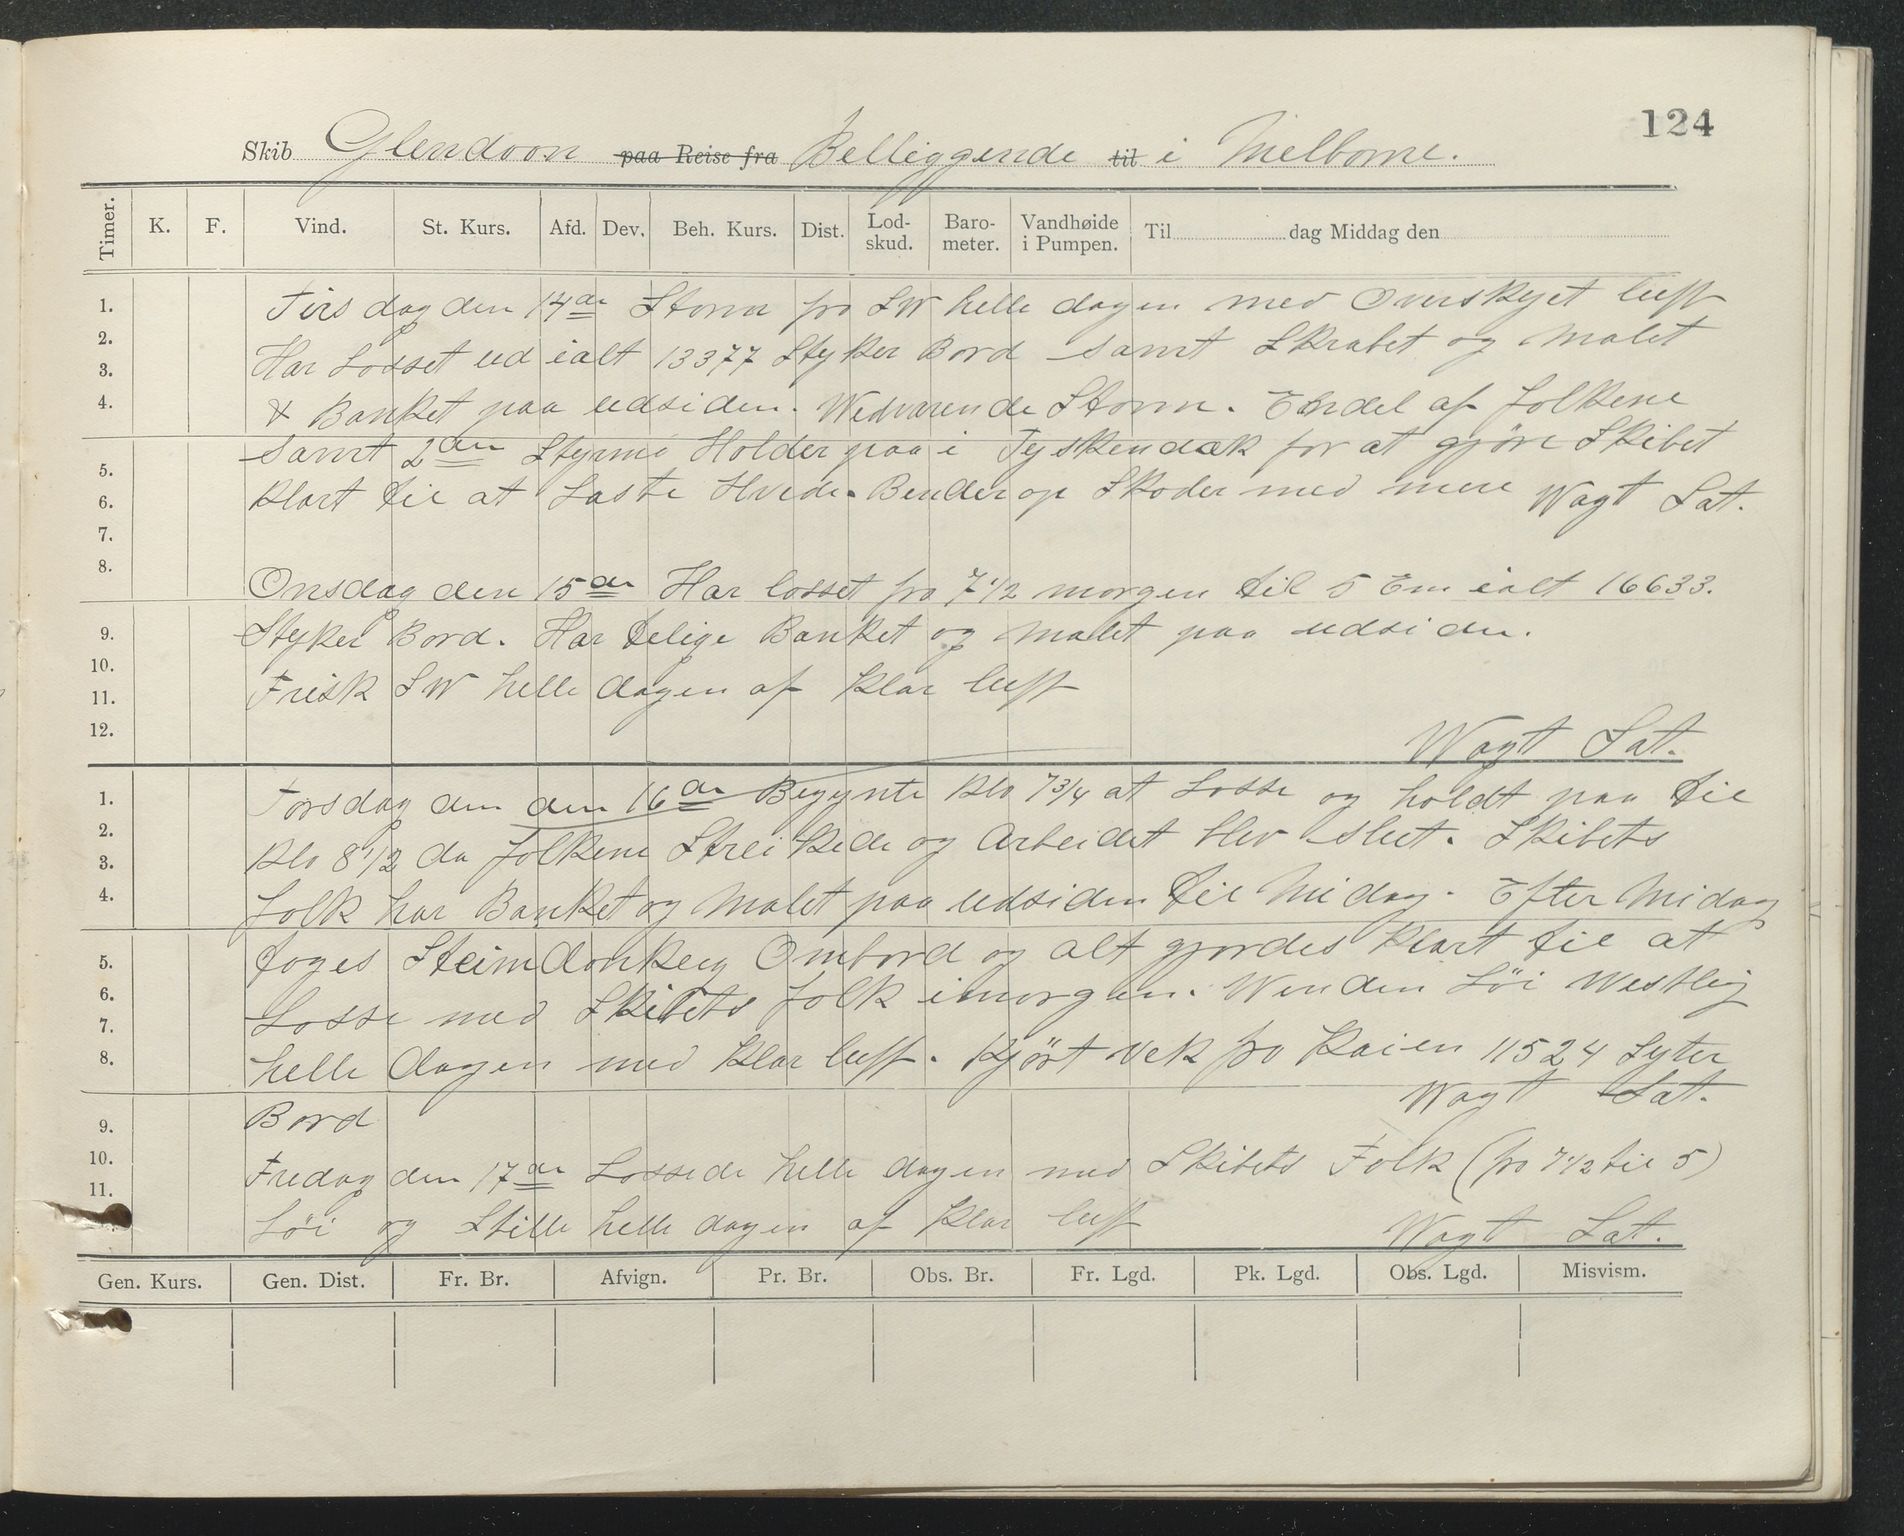 124
Skib Glendoon paa Reise fra Belliggende til i Melborne.
Timer. K. F. Vind. St. Kurs. Afd. Dev. Beh. Kurs. Dist. Lod-skud. Baro-meter. Vandhøide i Pumpen. Til dag Middag den
1. Tirsdag den 14de Storm fra SW helle dagen med Overskyet luft
2. Har Losset ud ialt 13377 Styker Bord samt Skrabet og Malet
3.
4. & Banket paa udsiden. Wedvarende Storm. Endel af folkene
samt 2den Styrmd Holder paa i Tyskendæk for at gjöre Skibet
5.
6. klart til at Laste Hvede. Bender op Skoder med mere Wagt Sat.
7.
8. Onsdag den 15de Har losset fra 7 1/2 morgen til 5 Em ialt 16633.
9. Styker Bord. Har telige Banket og Malet paa udsiden.
10.
11. Frisk SW helle dagen af klar luft
12. Wagt Sat.
1. Torsdag den den 16de Begynte Klo 7 3/4 at Losse og holdt paa til
2. Klo 8 1/2 da folkene Streikede og Arbeidet blev slut. Skibets
3.
4. folk har Banket og Malet paa udsiden til Midag. Efter Midag
5. toges Steimdonkey Ombord og alt gjordes klart til at
6. Losse med Skibets folk imorgen. Winden Löi Westlig
7.
8. helle dagen med klar luft. Kjört vek fra Kaien 11524 Syter
Wagt Sat.
9. Bord
10. Fredag den 17de Lossede helle dagen med Skibets Folk (fra 7 1/2 til 5)
11.
Löi og Stille helle dagen af klar luft Wagt Sat.
Gen. Kurs. Gen. Dist. Fr. Br. Afvign. Pr. Br. Obs. Br. Fr. Lgd. Pk. Lgd. Obs. Lgd. Misvism.